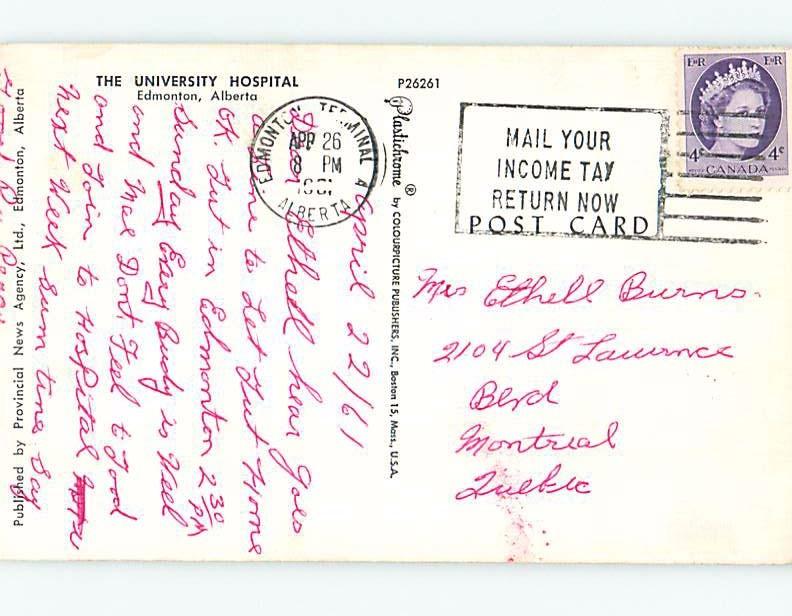 THE UNIVERSITY HOSPITAL
Edmonton, Alberta
P26261
EDMONTON TERMINAL A
APR 26
8 PM
1961
ALBERTA
MAIL YOUR
INCOME TAX
RETURN NOW
POST CARD
E II R E II R
4c 4c
CANADA
Plastichrome ® by COLOURPICTURE PUBLISHERS, INC., Boston 15, Mass., U.S.A.
Published by Provincial News Agency, Ltd., Edmonton, Alberta
April 22/61
Dear Ethell hear Goes
a line to Let Jut Home
OK. Jut in Edmonton 2 30 PM
Sunday Every Budy is Weel
and Mae Dont Feel to Good
and Join to Hospital
Next Week sum time Say
Mrs Ethell Burns.
2104 St Lawrnce
Blvd
Montreal
Quebic